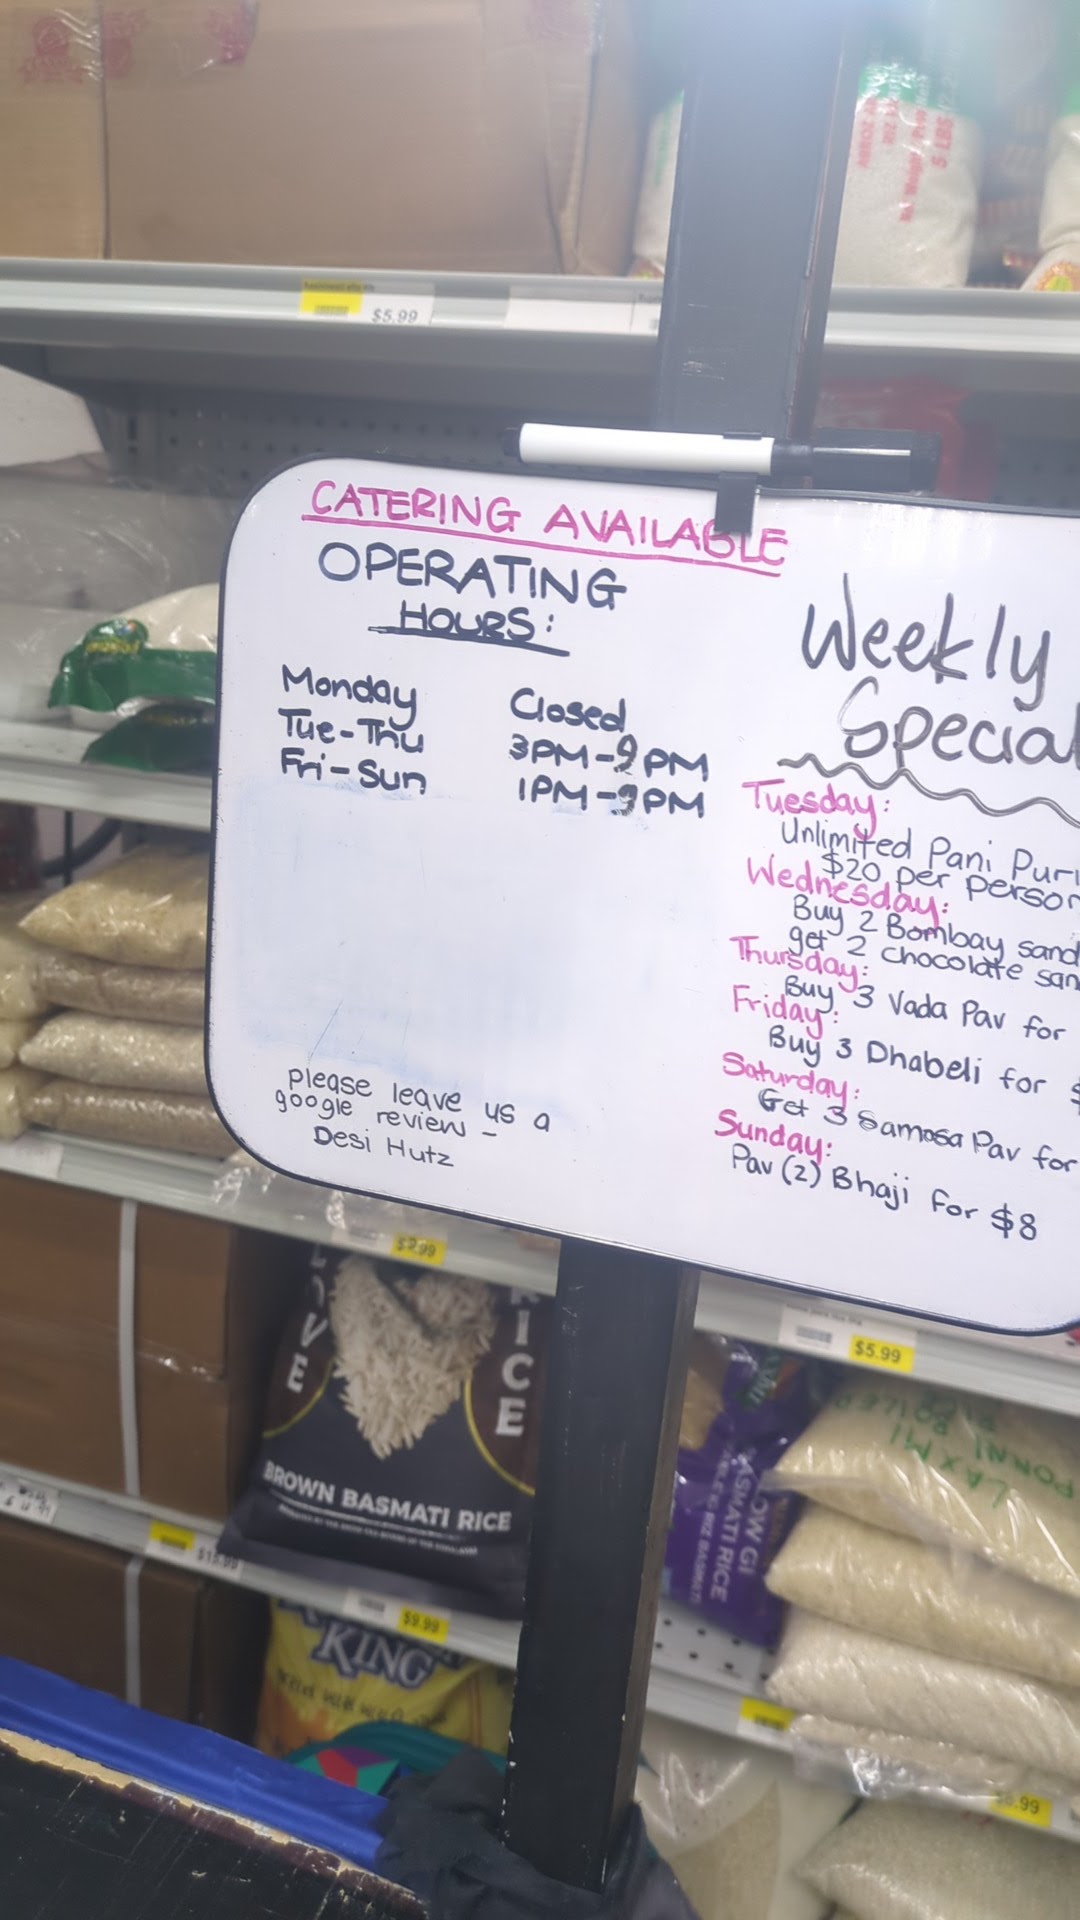 5 LBS
$5.99
CATERING AVAILABLE
OPERATING
HOURS:
Monday Closed
Tue-Thu 3PM-9PM
Fri-Sun 1PM-9PM
please leave us a
google review -
Desi Hutz
Weekly
Special
Tuesday:
Unlimited Pani Puri
$20 per person
Wednesday:
Buy 2 Bombay sand
get 2 chocolate san
Thursday:
Buy 3 Vada Pav for
Friday:
Buy 3 Dhabeli for $
Saturday:
Get 3 Samosa Pav for
Sunday:
Pav (2) Bhaji for $8
$5.99
LOVE RICE
BROWN BASMATI RICE
LAXMI
PONNI
LOW GI
BASMATI RICE
$9.99
KING